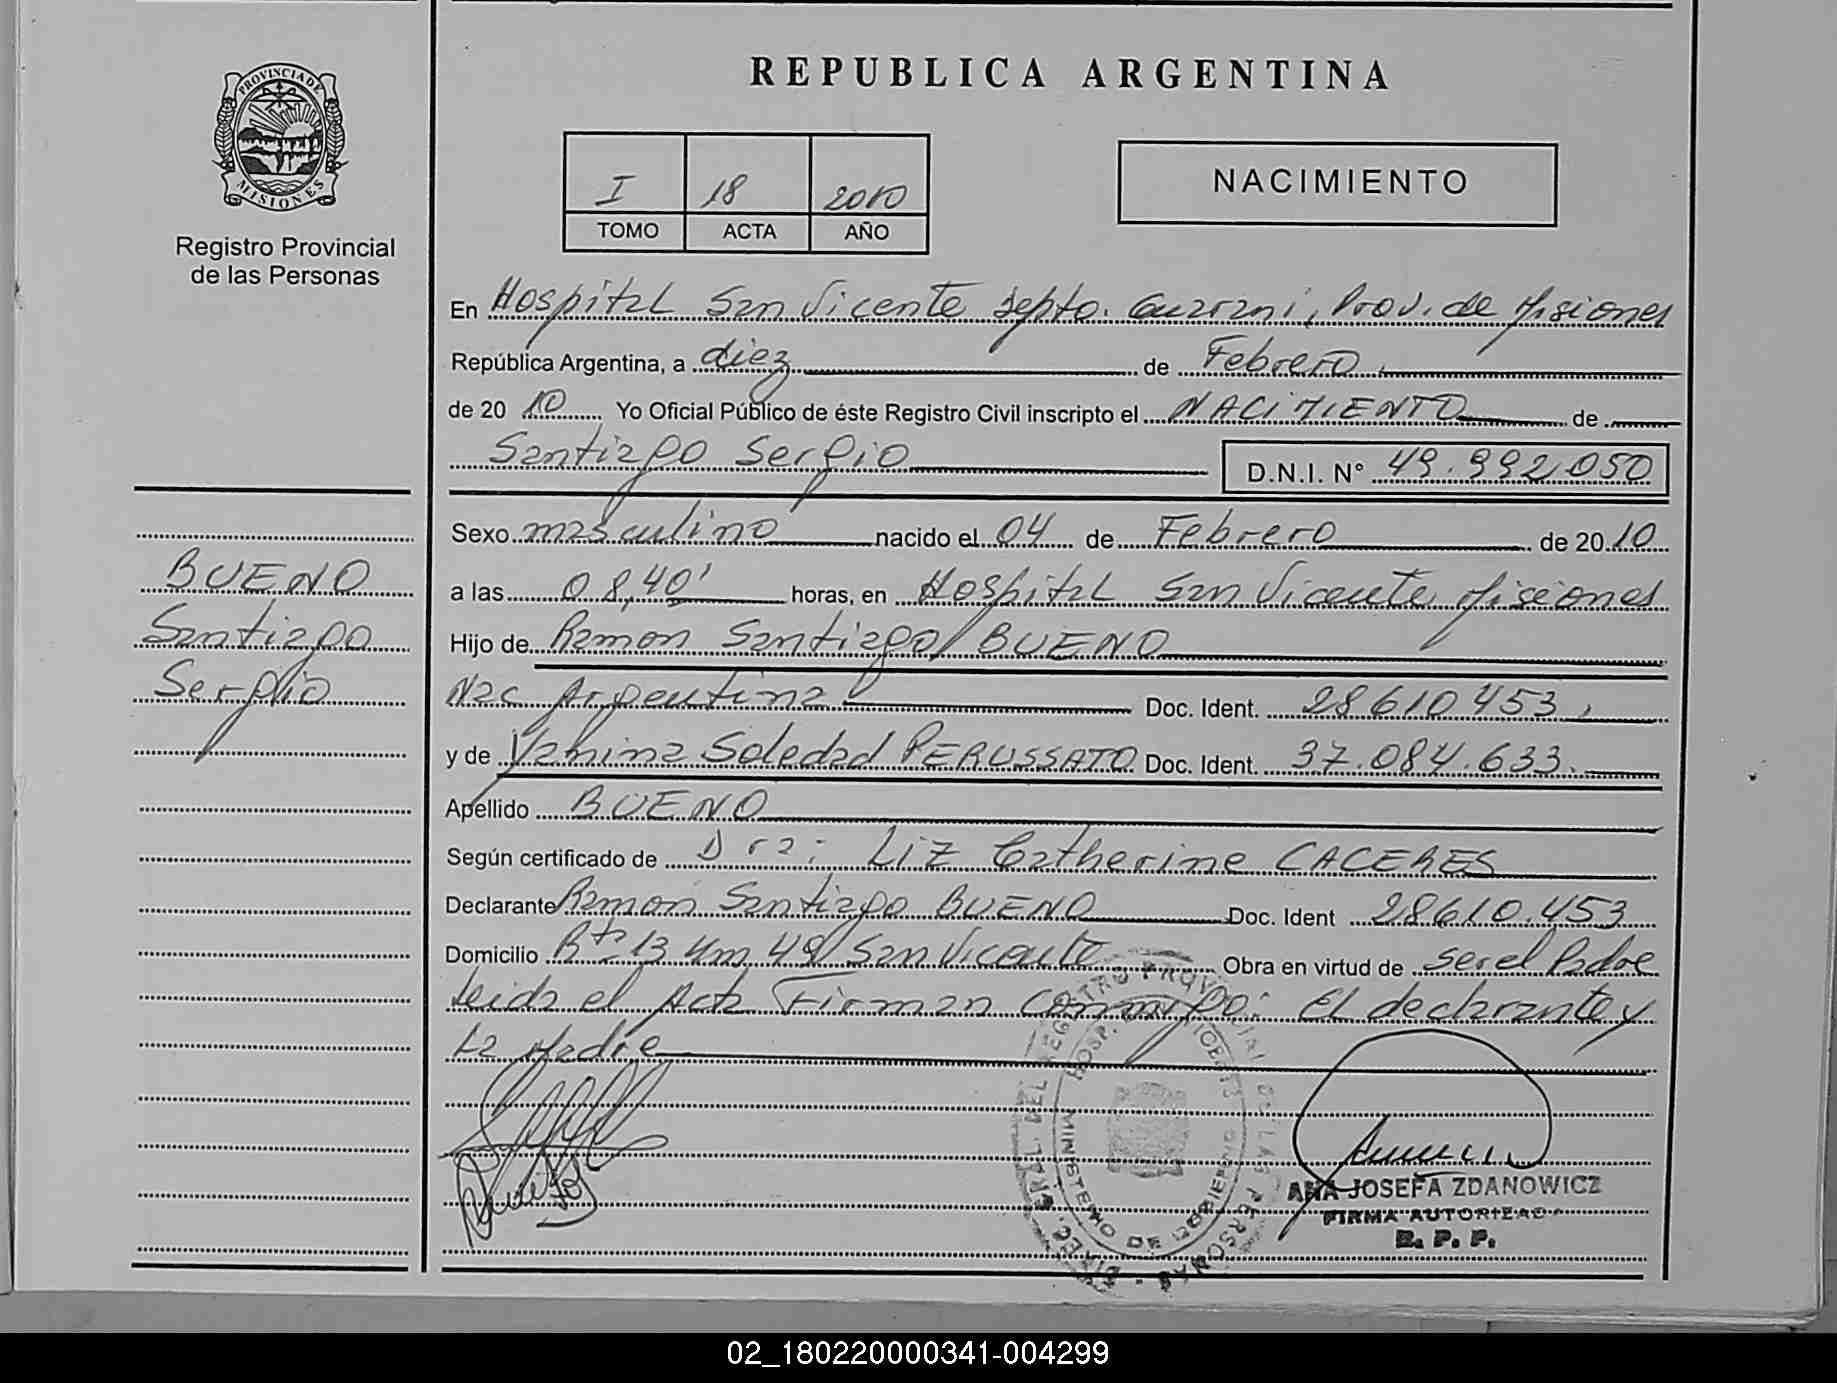 REPUBLICA ARGENTINA
PROVINCIA DE MISIONES
Registro Provincial
de las Personas
I 18 2010
TOMO ACTA AÑO
NACIMIENTO
En Hospital San Vicente Depto. Guarani, Prov. de Misiones
República Argentina, a diez de Febrero
de 2010 Yo Oficial Público de éste Registro Civil inscripto el NACIMIENTO de
Santiago Sergio D.N.I. N° 49.992.050
Sexo masculino nacido el 04 de Febrero de 2010
a las 08,40' horas, en Hospital San Vicente Misiones
Hijo de Ramon Santiago BUENO
Nac Argentina Doc. Ident. 28610453
y de Yanina Soledad PERUSSATO Doc. Ident. 37.084.633.
Apellido BUENO
Según certificado de Dra: Liz Catherine CACERES
Declarante Ramon Santiago BUENO Doc. Ident 28610.453
Domicilio Rta 13 Km 49 San Vicente Obra en virtud de ser el Padre
Leida el Acta Firman Conmigo: El declarante y
La Madre
BUENO
Santiago
Sergio
ANA JOSEFA ZDANOWICZ
FIRMA AUTORIZADA
R. P. P.
02_180220000341-004299